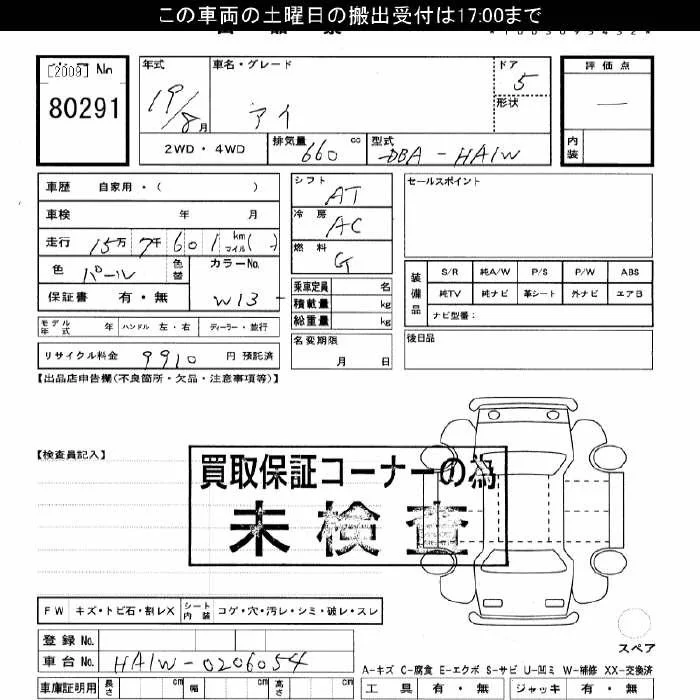 この車両の土曜日の搬出受付は17:00まで
[2009] No
80291
年式
19/8月
車名・グレード
アイ
ドア
5
形状
評価点
—
内装
2WD・4WD
排気量 660 cc
型式 DBA-HA1W
車歴 自家用・( )
車検 年 月
走行 15万7千601 km マイル( )
色 パール
色替
カラーNo.
W13
保証書 有・無
モデル年式 年 ハンドル 左・右 ディーラー・並行
リサイクル料金 9910 円 預託済
シフト AT
冷房 AC
燃料 G
乗車定員 名
積載量 kg
総重量 kg
名変期限
月 日
セールスポイント
装備品
S/R 純A/W P/S P/W ABS
純TV 純ナビ 革シート 外ナビ エアB
ナビ型番:
後日品
【出品店申告欄(不良箇所・欠品・注意事項等)】
【検査員記入】
買取保証コーナーの為
未検査
FW キズ・トビ石・割レX
シート内装 コゲ・穴・汚レ・シミ・破レ・スレ
登録 No.
車台 No. HA1W-0206054
車庫証明用 長さ cm 幅 cm 高さ cm
スペア
A-キズ C-腐食 E-エクボ S-サビ U-凹ミ W-補修 XX-交換済
工具 有・無 ジャッキ 有・無